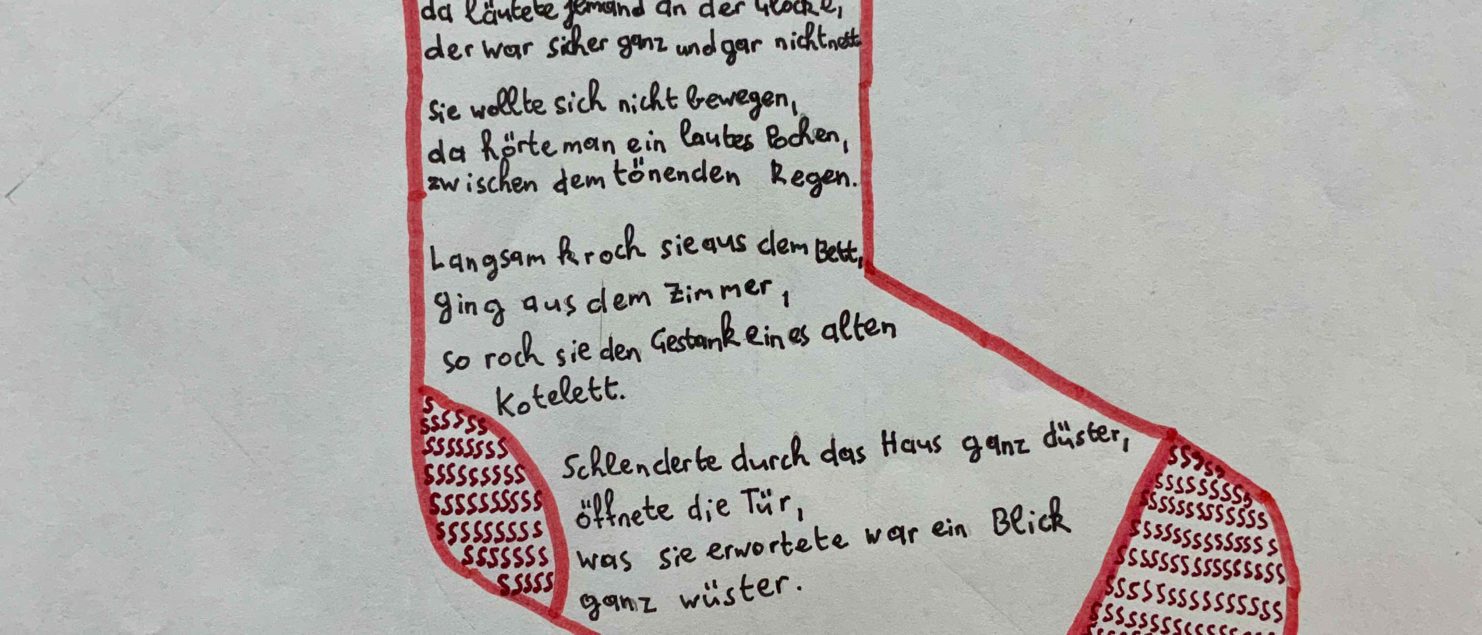 da läutete jemand an der Glocke,
der war sicher ganz und gar nicht nett
Sie wollte sich nicht bewegen,
da hörte man ein lautes Pochen,
zwischen dem tönenden Regen.
Langsam kroch sie aus dem Bett,
ging aus dem Zimmer,
so roch sie den Gestank eines alten
Kotelett.
Schlenderte durch das Haus ganz düster,
öffnete die Tür,
was sie erwortete war ein Blick
ganz wüster.
S
SSSSSS
SSSSSSSS
SSSSSSSSS
SSSSSSSSSS
SSSSSSSSS
SSSSSSS
SSSSS
SSSSS
SSSSSSSSS
SSSSSSSSSSSS
SSSSSSSSSSSSS
SSSSSSSSSSSSSSS
SSSSSSSSSSSSSSS
SSSSSSSSSSSSSS